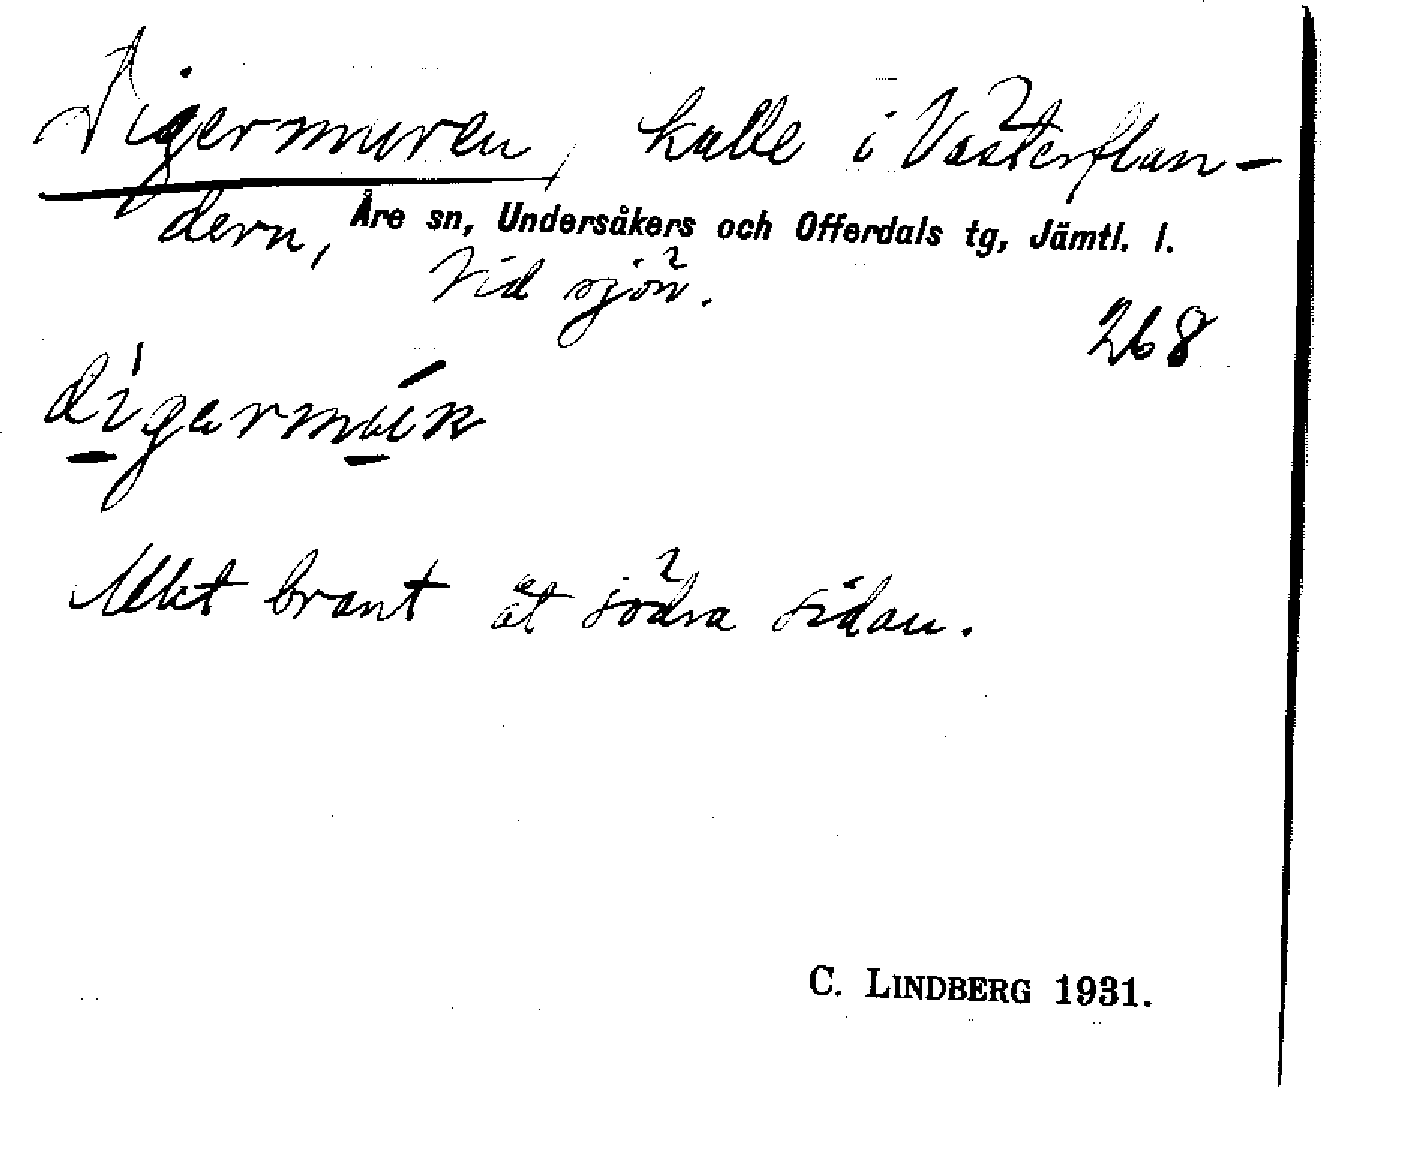 Digermuren, kulle i Västerflan-
dern, Åre sn, Undersåkers och Offerdals tg, Jämtl. l.
Vid sjön.
268
Mkt brant åt södra sidan.
C. LINDBERG 1931.